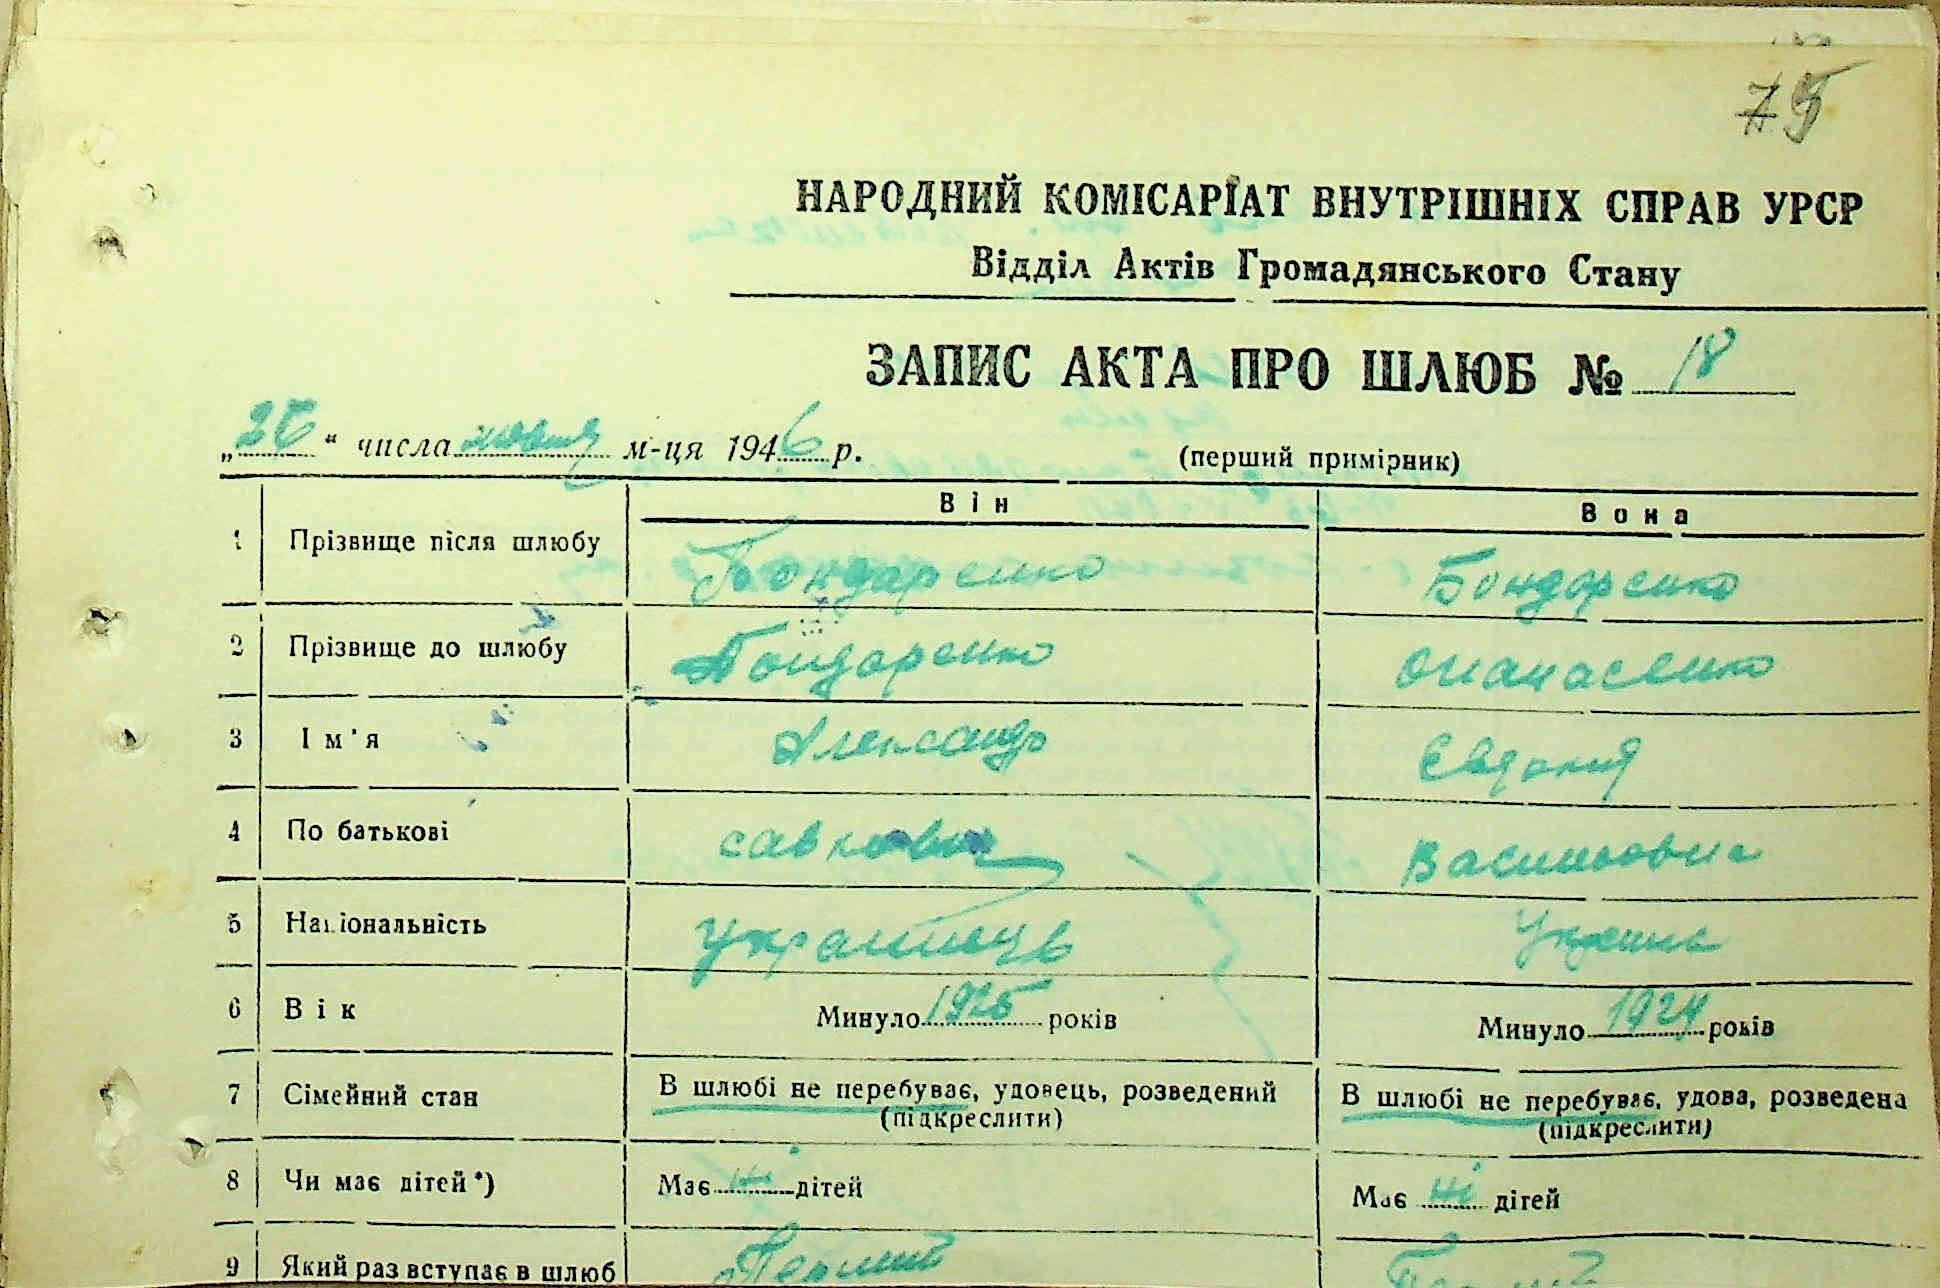 75
НАРОДНИЙ КОМІСАРІАТ ВНУТРІШНІХ СПРАВ УРСР
Відділ Актів Громадянського Стану
ЗАПИС АКТА ПРО ШЛЮБ № 18
„26“ числа м-ця 1946 р. (перший примірник)
Він Вона
1 Прізвище після шлюбу Бондаренко Бондаренко
2 Прізвище до шлюбу Бондаренко Опанасенко
3 Ім'я Александр Євдокия
4 По батькові Савкович Василовна
5 Національність українець
6 Вік Минуло 1925 років Минуло 1924 років
7 Сімейний стан В шлюбі не перебуває, удовець, розведений В шлюбі не перебуває, удова, розведена
(підкреслити) (підкреслити)
8 Чи має дітей*) Має ні дітей Має ні дітей
9 Який раз вступає в шлюб Перший Перший